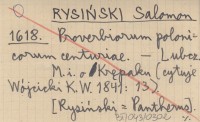 RYSIŃSKI Salomon
1618. Proverbiorum poloni-
corum centuriae. — Lubcz.
M. i. o Krępaku [cytuje
Wójcicki K.W. 1841: 13]
[Rysiński = Pantherus].